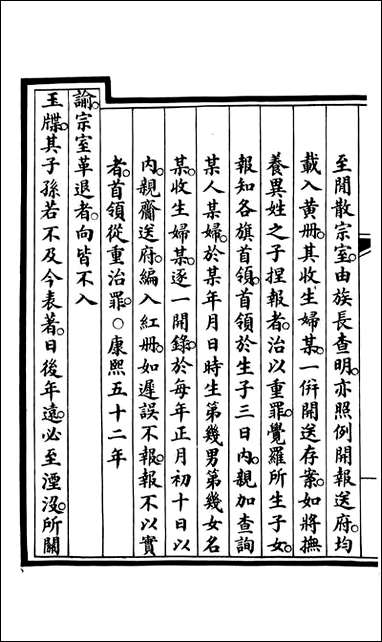 至閒散宗室。由族長查明。亦照例開報送府。均
載入黃冊。其收生婦某。一併開送存案。如將撫
養異姓之子捏報者。治以重罪。覺羅所生子女。
報知各旗首領。首領於生子三日內。親加查詢
某人某婦。於某年月日時生第幾男第幾女名
某。收生婦某。逐一開錄。於每年正月初十日以
內。親齎送府。編入紅冊。如遲誤不報。報不以實
者。首領從重治罪。○康熙五十二年
諭。宗室革退者。向皆不入
玉牒。其子孫若不及今表著。日後年遠。必至湮沒。所關